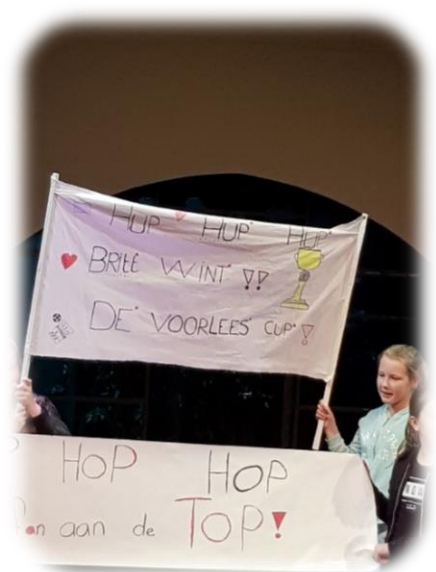 HUP HUP HUP
BRITT WINT !!
DE VOORLEES CUP !
HOP HOP
aan de TOP!